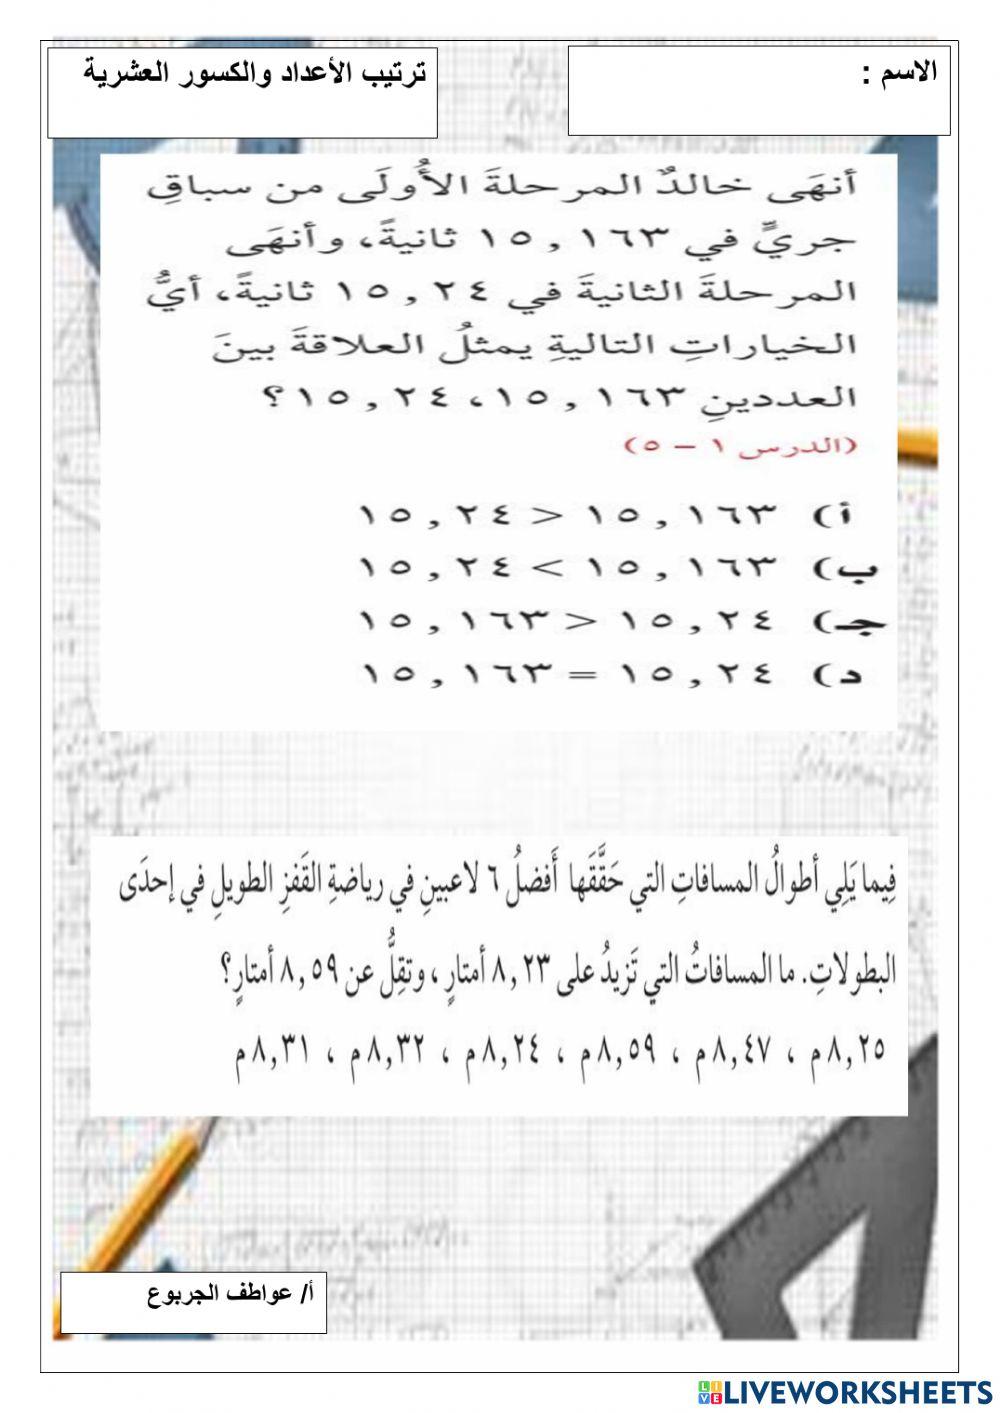 الاسم :
ترتيب الأعداد والكسور العشرية
أنهَى خالدٌ المرحلةَ الأُولَى من سباقِ
جريٍّ في ١٥,١٦٣ ثانيةً، وأنهَى
المرحلةَ الثانيةَ في ١٥,٢٤ ثانيةً، أيُّ
الخياراتِ التاليةِ يمثلُ العلاقةَ بينَ
العددينِ ١٥,١٦٣، ١٥,٢٤؟
(الدرس ١ – ٥)
أ) ١٥,١٦٣ < ١٥,٢٤
ب) ١٥,١٦٣ > ١٥,٢٤
جـ) ١٥,٢٤ < ١٥,١٦٣
د) ١٥,٢٤ = ١٥,١٦٣
فِيما يَلِي أطوالُ المسافاتِ التي حَقَّقَها أَفضلُ ٦ لاعبينِ في رياضةِ القَفزِ الطويلِ في إحدَى
البطولاتِ. ما المسافاتُ التي تَزيدُ على ٨,٢٣ أمتارٍ، وتقِلُّ عن ٨,٥٩ أمتارٍ؟
٨,٢٥م ، ٨,٤٧م ، ٨,٥٩م ، ٨,٢٤م ، ٨,٣٢م ، ٨,٣١م
أ/ عواطف الجربوع
LIVE LIVEWORKSHEETS